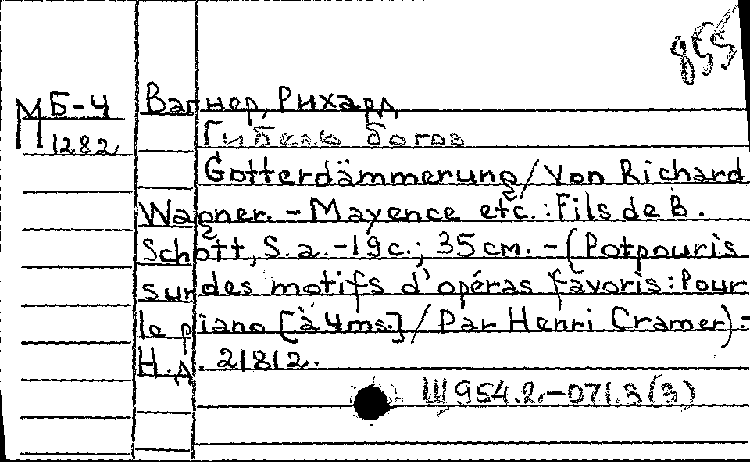 855
М Б-4
1282
Вагнер, Рихард
Гибель богов
Gotterdämmerung / Von Richard
Wagner. - Mayence etc. : Fils de B.
Schott, S. a. - 19 c.; 35 см. - (Potpouris
sur des motifs d'opéras favoris : Pour
le piano [à 4 ms.] / Par Henri Cramer). -
Н.д. 21812.
Щ 954.2-071.3(3)